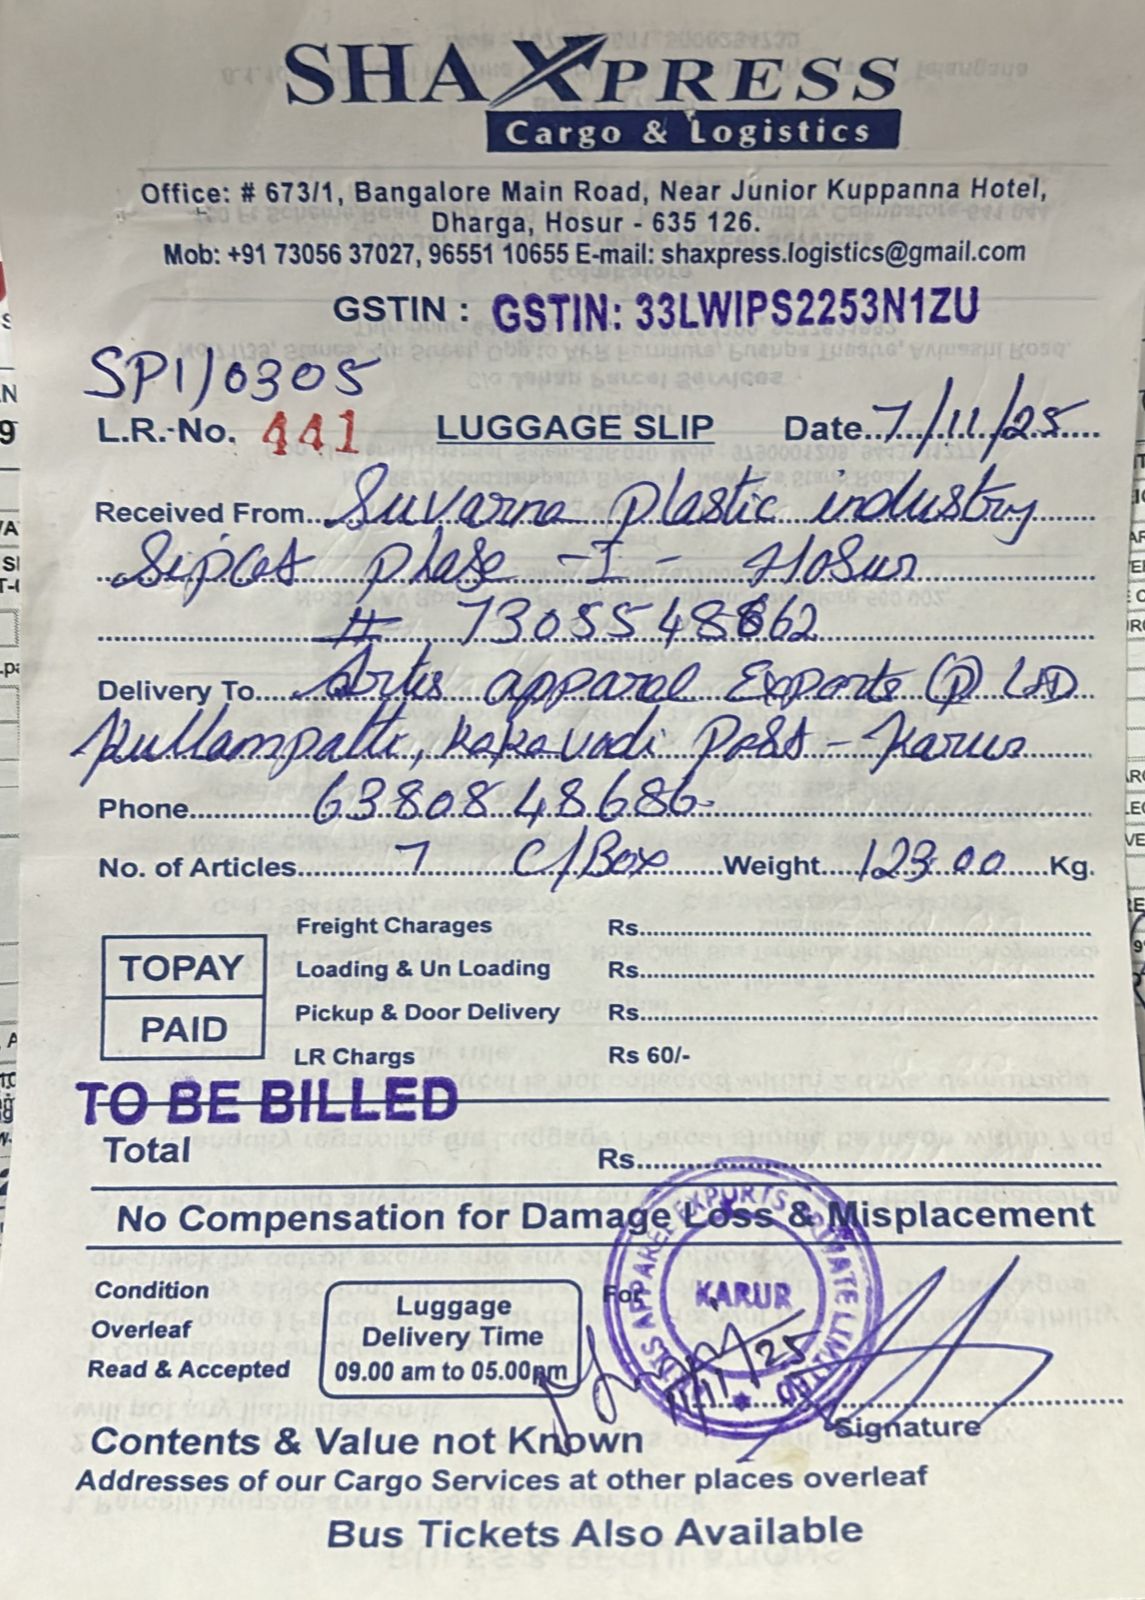 SHAXPRESS
Cargo & Logistics
Office: # 673/1, Bangalore Main Road, Near Junior Kuppanna Hotel,
Dharga, Hosur - 635 126.
Mob: +91 73056 37027, 96551 10655 E-mail: shaxpress.logistics@gmail.com
GSTIN : GSTIN: 33LWIPS2253N1ZU
SPI/0305
L.R.-No. 441 LUGGAGE SLIP Date 7/11/25
Received From Suvarna plastic industry
Sipcot phase -I- Hosur
# 7305548862
Delivery To Artis apparel Exports (P) LTD
Kullampatti, Kakavadi Post - Karur
Phone 6380848686
No. of Articles 7 C/Box Weight 123.00 Kg.
Freight Charages Rs.
TOPAY
Loading & Un Loading Rs.
Pickup & Door Delivery Rs.
PAID
LR Chargs Rs 60/-
TO BE BILLED
Total Rs.
No Compensation for Damage Loss & Misplacement
Condition
Overleaf
Read & Accepted
Luggage
Delivery Time
09.00 am to 05.00pm
For
APPAREL EXPORTS PRIVATE LIMITED
KARUR
Signature
Contents & Value not Known
Addresses of our Cargo Services at other places overleaf
Bus Tickets Also Available